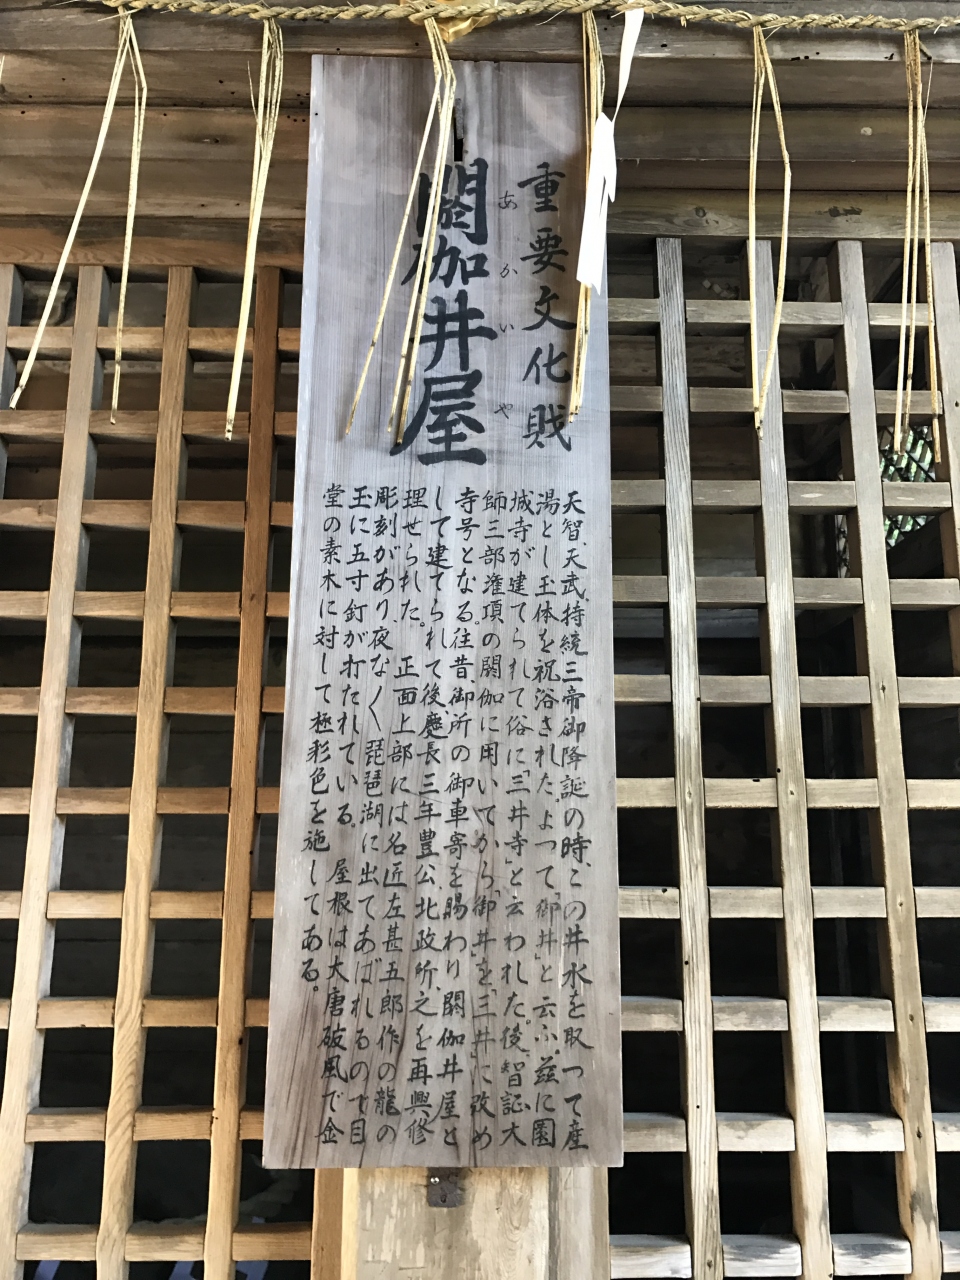 重要文化財
閼伽井屋
あかいや
天智、天武、持統三帝御降誕の時、この井水を取つて産
湯とし玉体を祝浴された。よつて「御井」と云ふ。茲に園
城寺が建てられて俗に「三井寺」と云われた。後、智証大
師三部潅頂の閼伽に用いてから「御井」を「三井」に改め
寺号となる。往昔、御所の御車寄を賜わり閼伽井屋と
して建てられて後慶長三年豊公北政所、之を再興修
理せられた。正面上部には名匠左甚五郎作の龍の
彫刻があり夜なく琵琶湖に出てあばれるので目
玉に五寸釘が打たれている。屋根は大唐破風で金
堂の素木に対して極彩色を施してある。